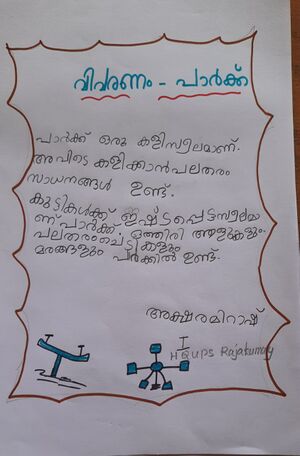 വിവരണം - പാർക്ക്
പാർക്ക് ഒരു കളിസ്ഥലമാണ്.
അവിടെ കളിക്കാൻ പലതരം
സാധനങ്ങൾ ഉണ്ട്.
കുട്ടികൾക്ക് ഇഷ്ടപ്പെട്ടസ്ഥലമാ
ണ് പാർക്ക്. ഒത്തിരി ആളുകളും
പലതരംചെടികളും
മരങ്ങളും പാർക്കിൽ ഉണ്ട്.
അക്ഷരമിറാഷ്
I
HQUPS Rajakumay